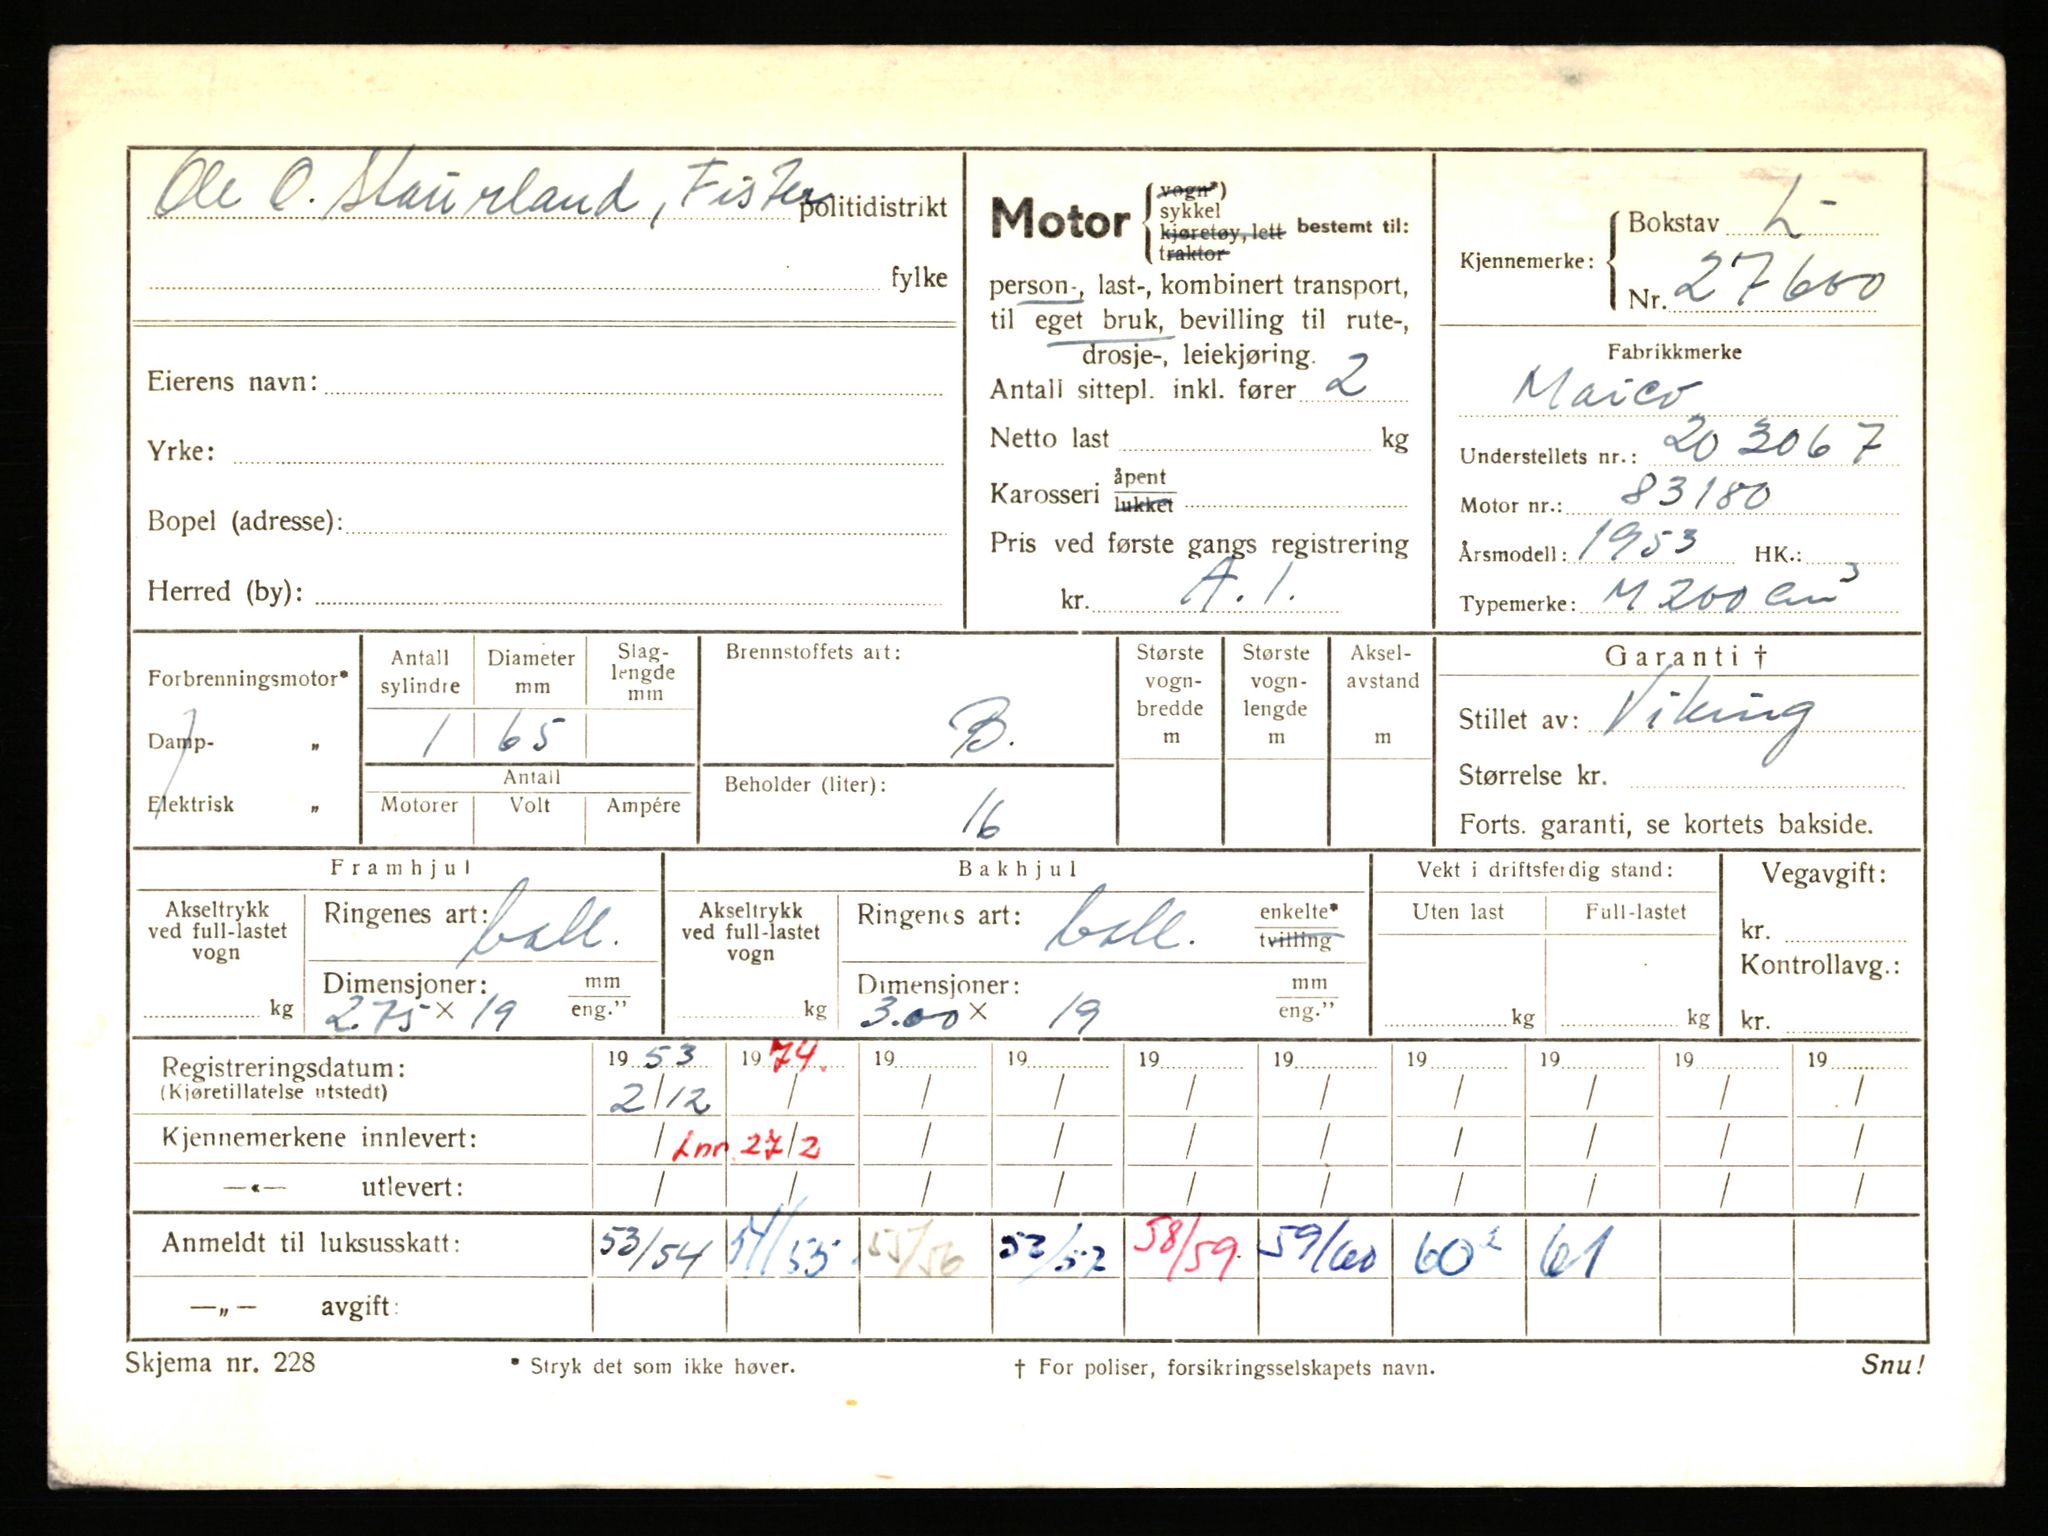 Ole O. Staurland, Fister politidistrikt
fylke
Eierens navn:
Yrke:
Bopel (adresse):
Herred (by):
Motor
vogn*)
sykkel
kjøretøy, lett
traktor
bestemt til:
person-, last-, kombinert transport,
til eget bruk, bevilling til rute-,
drosje-, leiekjøring.
Antall sittepl. inkl. fører 2
Netto last kg
Karosseri åpent
lukket
Pris ved første gangs registrering
kr. A. 1.
Kjennemerke:
Bokstav L-
Nr. 27600
Fabrikkmerke
Maico
Understellets nr.: 203067
Motor nr.: 83180
Årsmodell: 1953 HK.:
Typemerke: M 200 cm³
Forbrenningsmotor*
Damp- „
Elektrisk „
Antall sylindre
1
Diameter mm
65
Slaglengde mm
Antall
Motorer Volt Ampére
Brennstoffets art:
B.
Beholder (liter):
16
Største vogn-
bredde
m
Største vogn-
lengde
m
Aksel-
avstand
m
Garanti †
Stillet av: Viking
Størrelse kr.
Forts. garanti, se kortets bakside.
Framhjul
Akseltrykk
ved full-lastet
vogn
kg
Ringenes art: ball.
Dimensjoner: mm
2.75 × 19 eng.”
Bakhjul
Akseltrykk
ved full-lastet
vogn
kg
Ringenes art: ball. enkelte*
tvilling
Dimensjoner: mm
3.00 × 19 eng.”
Vekt i driftsferdig stand:
Uten last Full-lastet
kg kg
Vegavgift:
kr.
Kontrollavg.:
kr.
Registreringsdatum: 19 53 19 74. 19 19 19 19 19 19 19 19
(Kjøretillatelse utstedt) 2/12 / / / / / / / / /
Kjennemerkene innlevert: / Inn. 27/2 / / / / / / / /
—«— utlevert: / / / / / / / / / /
Anmeldt til luksusskatt: 53/54 54/55 55/56 57/57 58/59. 59/60 60² 61
—„— avgift:
Skjema nr. 228 * Stryk det som ikke høver. † For poliser, forsikringsselskapets navn. Snu!